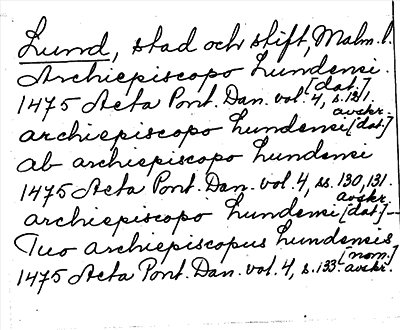 Lund, stad och stift, Malm. l.
Archiepiscopo Lundensi.
[dat.]
1475 Acta Pont. Dan. vol. 4, s. 131,
avskr.
archiepiscopo Lundensi [dat.]
ab archiepiscopo Lundensi
1475 Acta Pont. Dan. vol. 4, ss. 130, 131.
avskr.
archiepiscopo Lundensi [dat.] —
Tuo archiepiscopus Lundensis
[nom.]
1475 Acta Pont. Dan. vol. 4, s. 133. avskr.